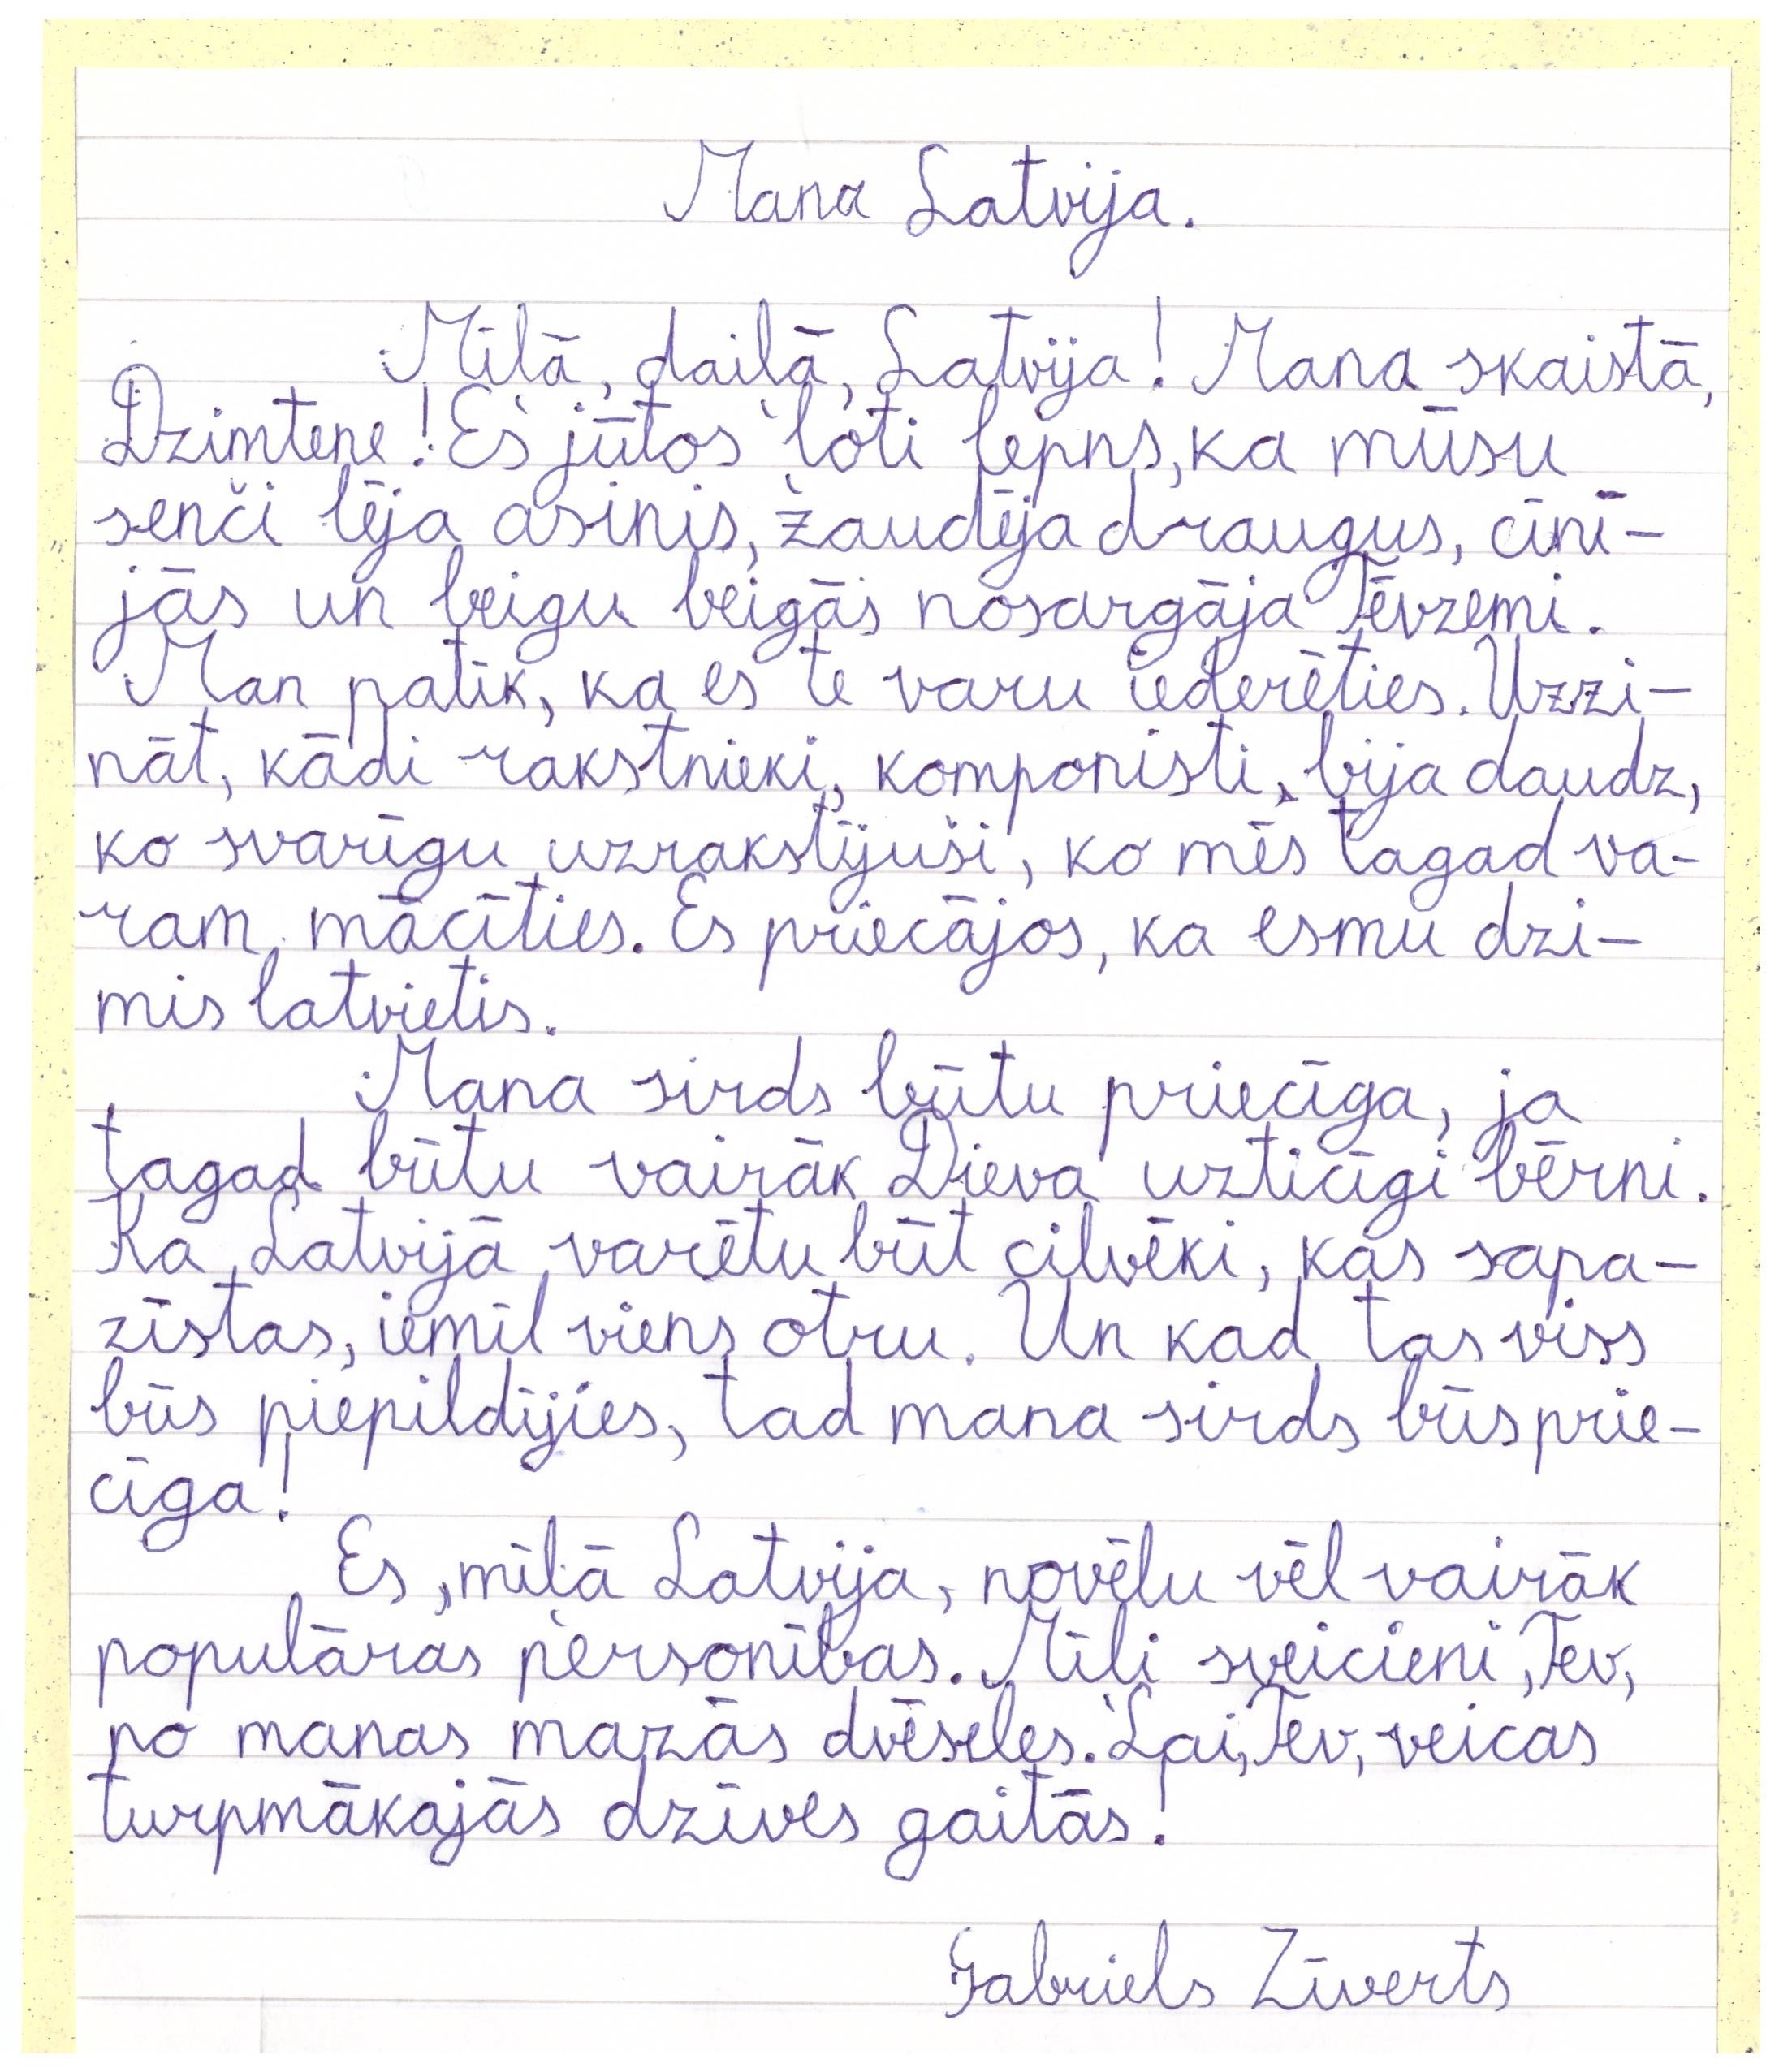 Mana Latvija.
Mīlā, dailā, Latvija! Mana skaistā,
Dzimtene! Es jūtos ļoti lepns, ka mūsu
senči lēja asinis, zaudēja draugus, cīnī-
jās un beigu beigās nosargāja Tēvzemi.
Man patīk, ka es te varu iederēties. Uzzi-
nāt, kādi rakstnieki, komponisti, bija daudz,
ko svarīgu uzrakstījuši, ko mēs tagad va-
ram mācīties. Es priecājos, ka esmu dzi-
mis latvietis.
Mana sirds būtu priecīga, ja
tagad būtu vairāk Dieva uzticīgi bērni.
Ka Latvijā varētu būt cilvēki, kas sapa-
zīstas, iemīl viens otru. Un kad tas viss
būs piepildījies, tad mana sirds būs prie-
cīga!
Es, mīlā Latvija, novēlu vēl vairāk
populāras personības. Mīļi sveicieni, Tev,
no manas mazās dvēseles. Lai, Tev, veicas
turpmākajās dzīves gaitās!
Gabriels Zīverts